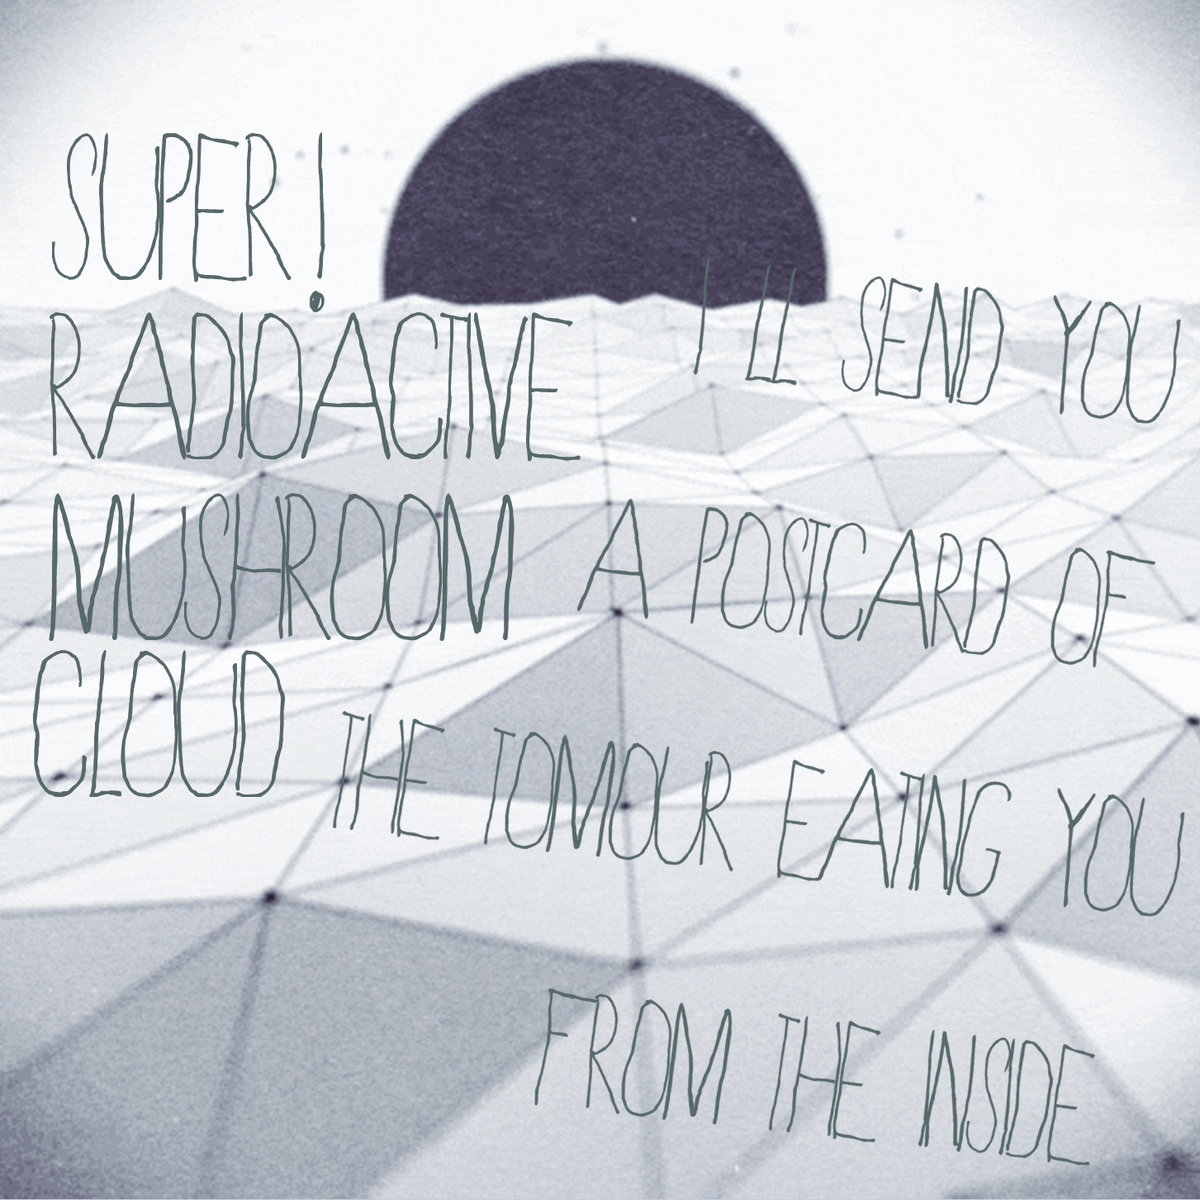 SUPER!
RADIOACTIVE
MUSHROOM
CLOUD
I'LL SEND YOU
A POSTCARD OF
THE TOMOUR EATING YOU
FROM THE INSIDE